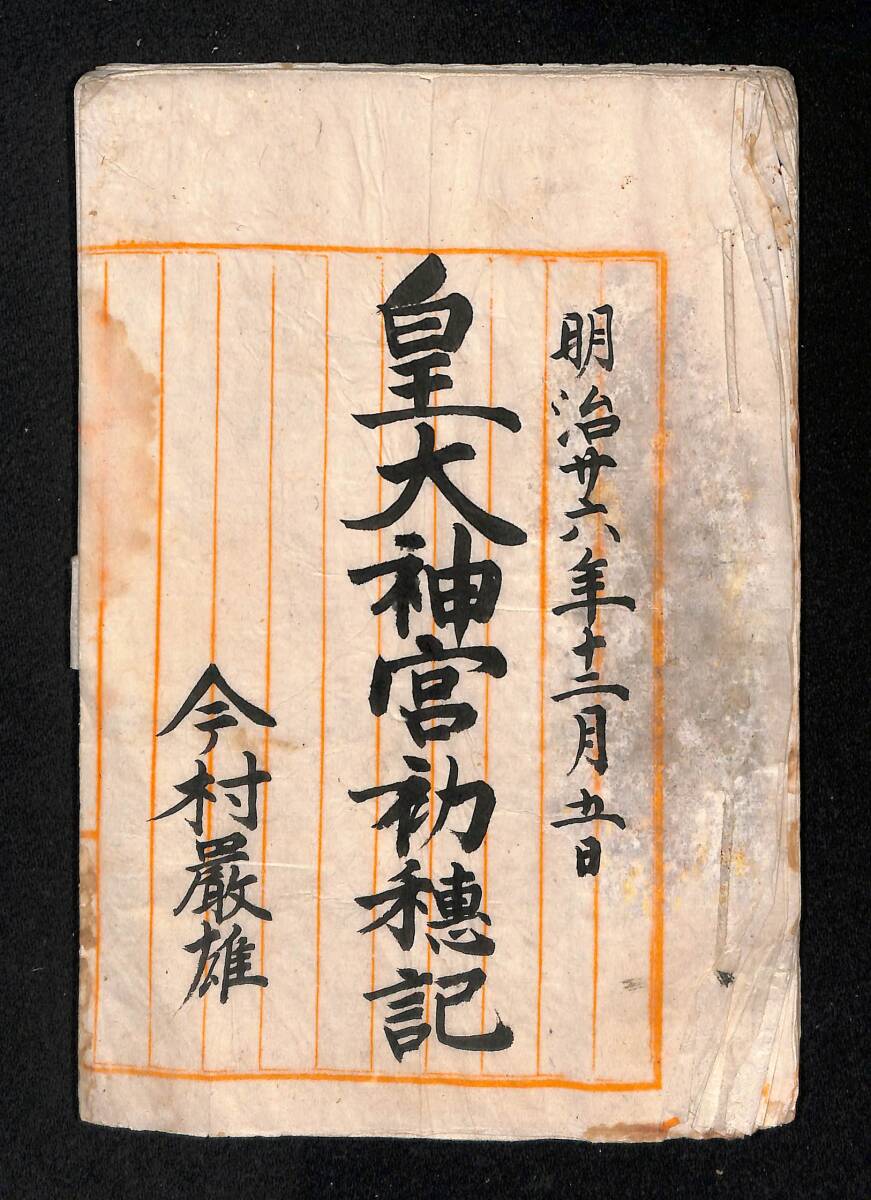 明治廿六年十二月五日
皇大神宮初穗記
今村嚴雄